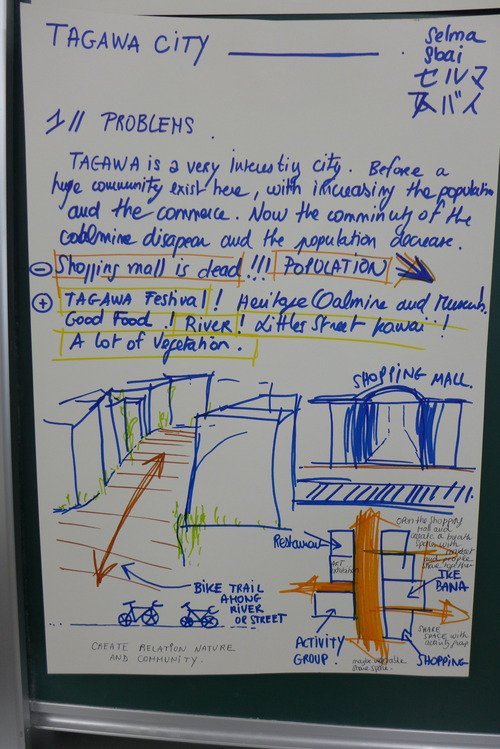 TAGAWA CITY
Selma
Sbai
セルマ
スバイ
1// PROBLEMS.
TAGAWA is a very interestig city. Before a
huge community exist here, with increasing the population
and the commerce. Now the comminuty of the
coalmine disapear and the population decrease.
- Shopping mall is dead!!! POPULATION
+ TAGAWA Festival! Heritage Coalmine and Museum.
Good Food! River! Littles Street kawai!
A lot of vegetation.
SHOPPING MALL.
Restaurant
ART
open the shopping
Mall and
create a
space with
market
and people
share together
IKE
BANA
BIKE TRAIL
AHONG
RIVER
OR STREET
SHARE
SPACE with
activity group
ACTIVITY
GROUP.
SHOPPING
share space.
CREATE RELATION NATURE
AND COMMUNITY.